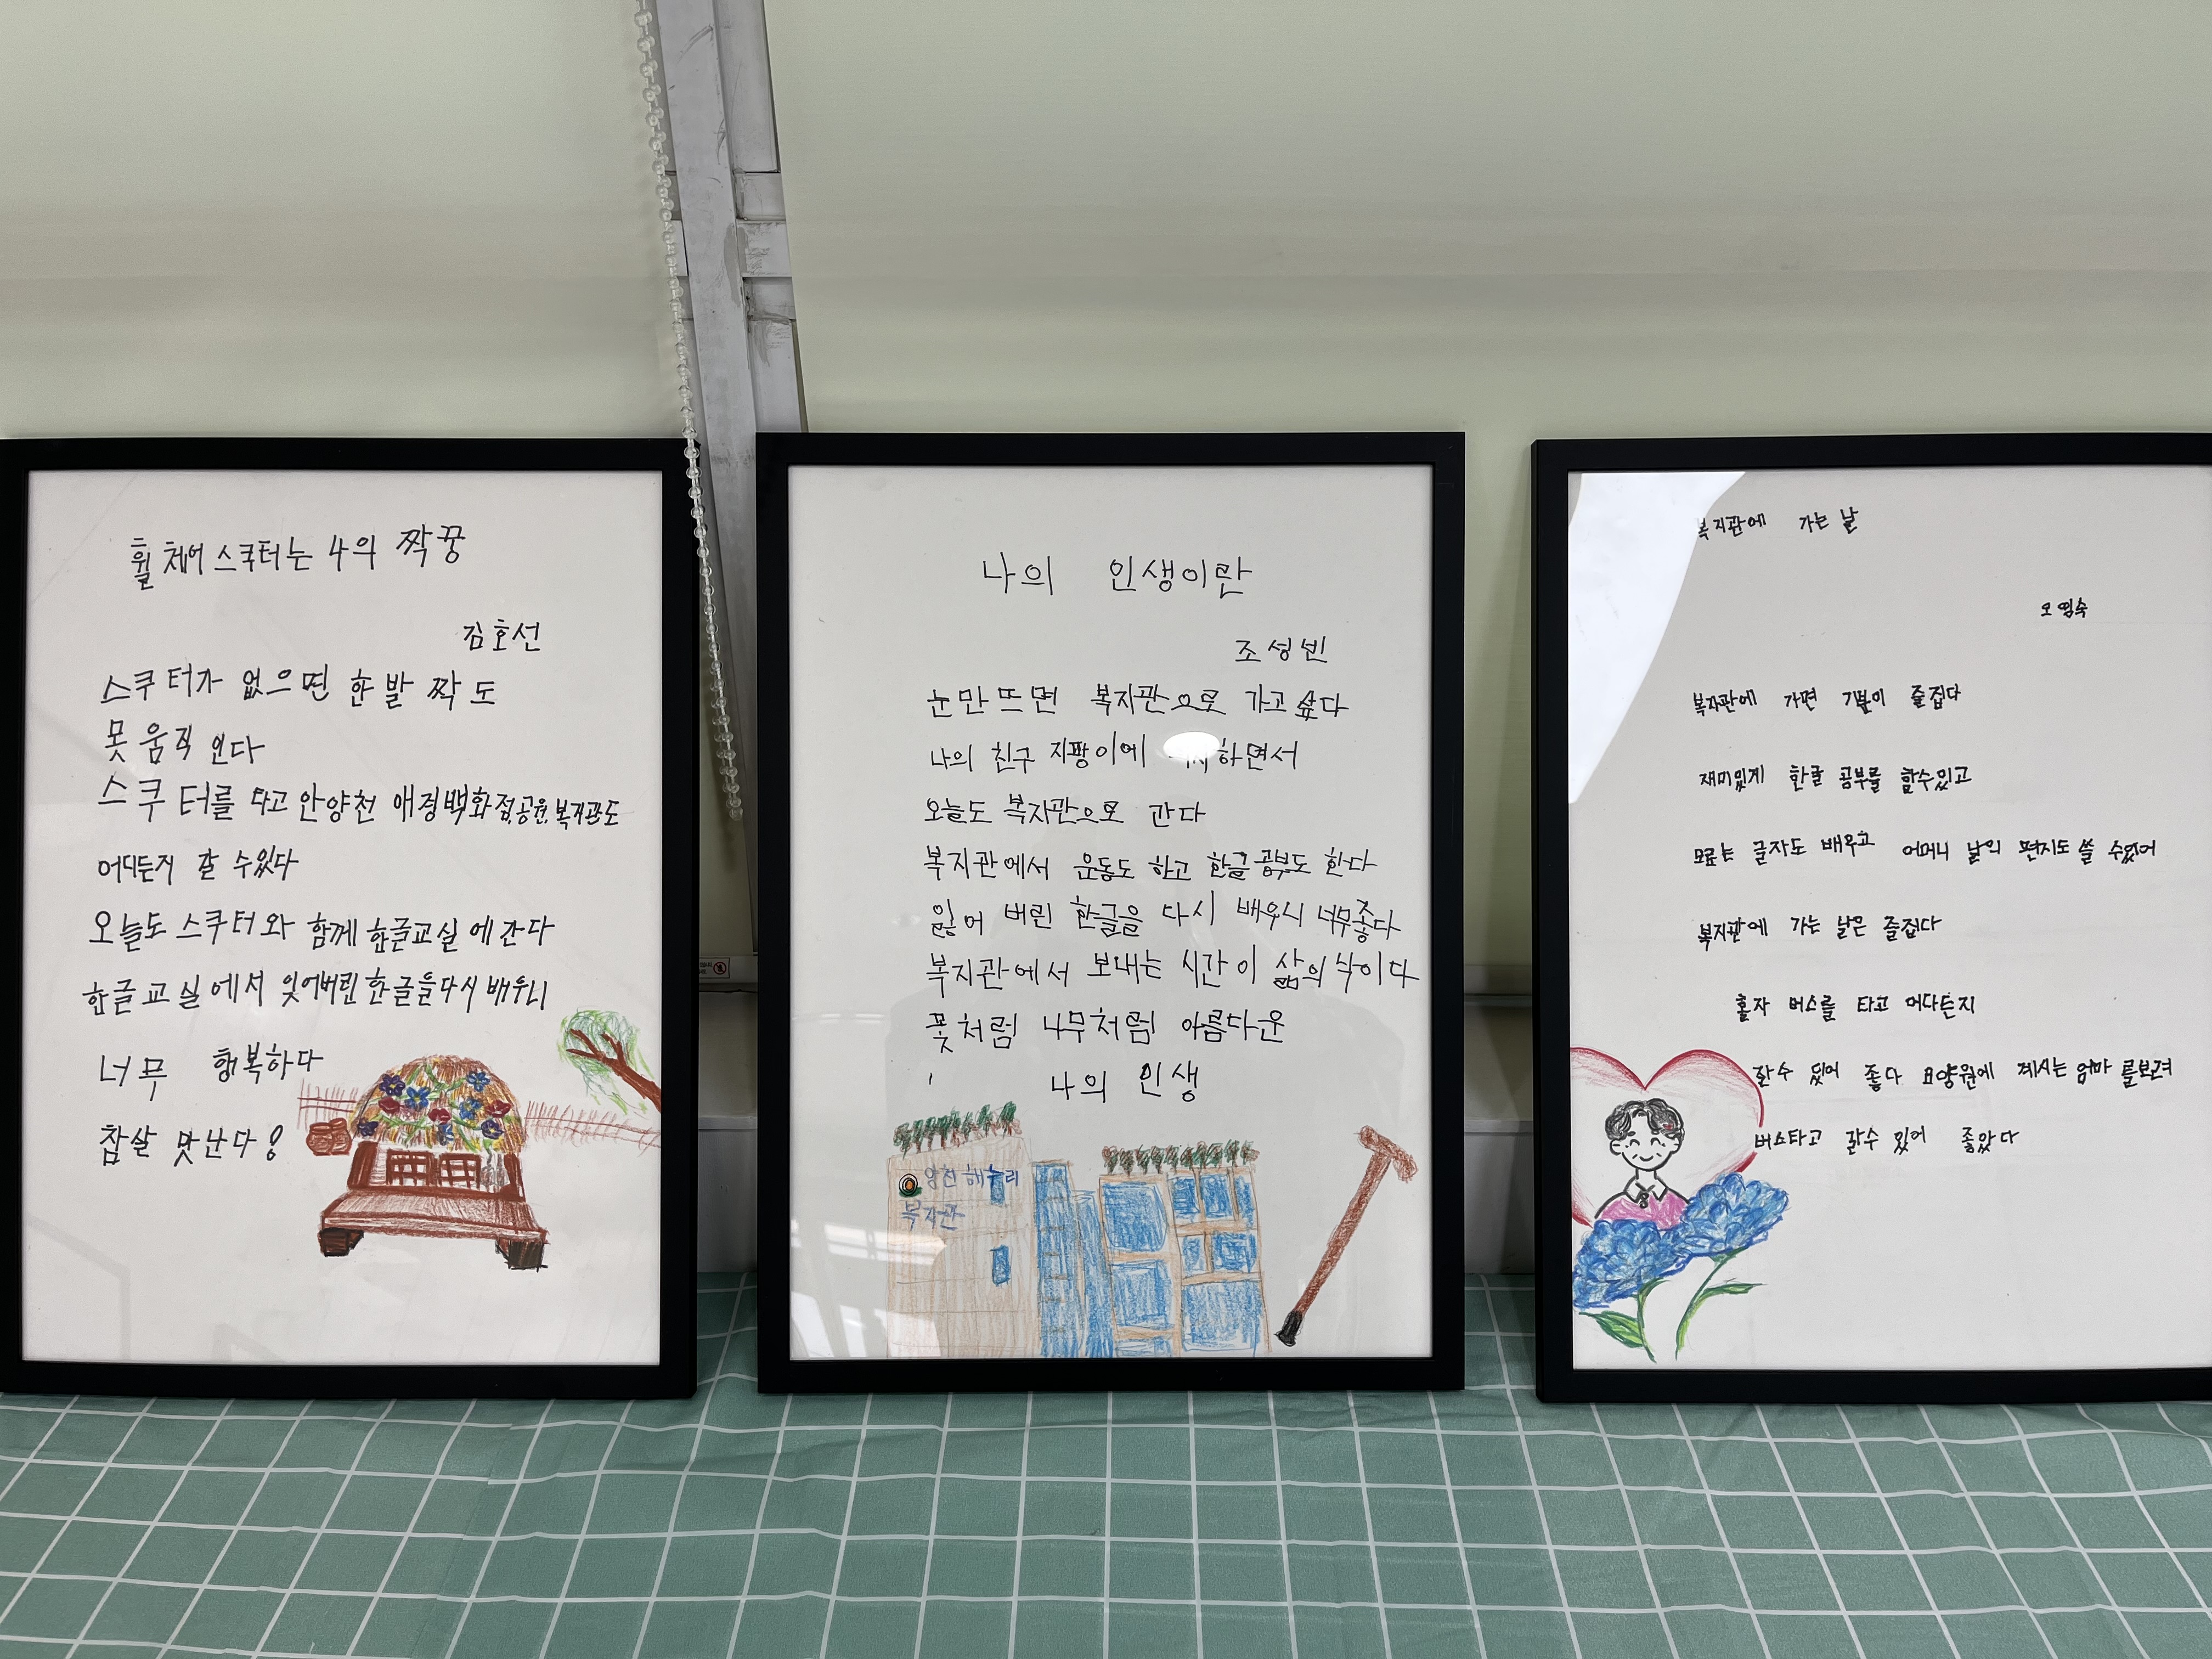 휠체어 스쿠터는 나의 짝꿍
김호선
스쿠터가 없으면 한발 짝 도
못 움직 인다
스쿠터를 타고 안양천 애경백화점.공원.복지관도
어디든지 갈 수있다
오늘도 스쿠터와 함께 한글교실 에 간다
한글교실에서 잊어버린 한글을 다시 배우니
너무 행복하다
참살 맛난다!
나의 인생이란
조성빈
눈만 뜨면 복지관으로 가고 싶다
나의 친구 지팡이에 하면서
오늘도 복지관으로 간다
복지관에서 운동도 하고 한글 공부도 한다
잃어 버린 한글을 다시 배우니 너무좋다
복지관에서 보내는 시간이 삶의 낙이다
꽃처럼 나무처럼 아름다운
나의 인생
양천 해누리
복지관
복지관에 가는 날
복지관에 가면 기분이 즐겁다
재미있게 한글 공부를 할수있고
모르는 글자도 배우고 어머니 날의 편지도 쓸 수있어
복지관에 가는 날은 즐겁다
혼자 버스를 타고 어디든지
갈수 있어 좋다 요양원에 계시는 엄마 를보러
버스타고 갈수 있어 좋았다